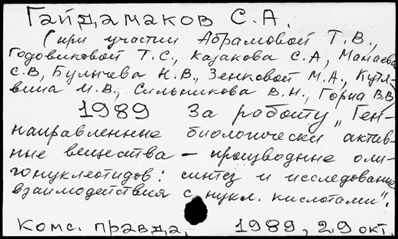 Гайдамаков С.А.
(при участии Абрамовой Т.В.,
Годовиковой Т.С., Казакова С.А., Мамаева
С.В., Булычева Н.В., Зенковой М.А., Кутя-
вина И.В., Сильникова В.Н., Горна В.В.)
1989 За работу "Ген-
направленные биологически актив-
ные вещества - производные оли-
гонуклеотидов: синтез и исследование
взаимодействия с нукл. кислотами".
Комс. правда, 1989, 29 окт.